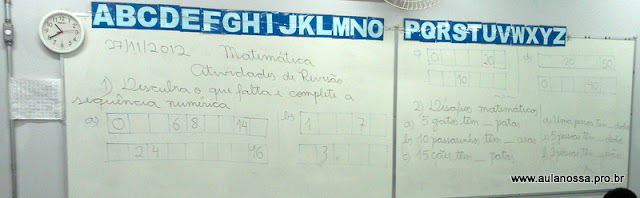 ABCDEFGHIJKLMNO PQRSTUVWXYZ
27/11/2012 Matemática
Atividades de Revisão
1) Descubra o que falta e complete a
sequência numérica
a) 0 6 8 14
2 4 16
b) 1 7
3
c) 0 20
10
d) 50
0 40
2) Desafios matemáticos
a) 5 gatos têm __ patas
b) 10 passarinhos têm __ asas
c) 15 cães têm __ patas
d) Uma pessoa tem __ dedos
e) 5 pessoas têm __ dedos
pessoas têm __
www.aulanossa.pro.br